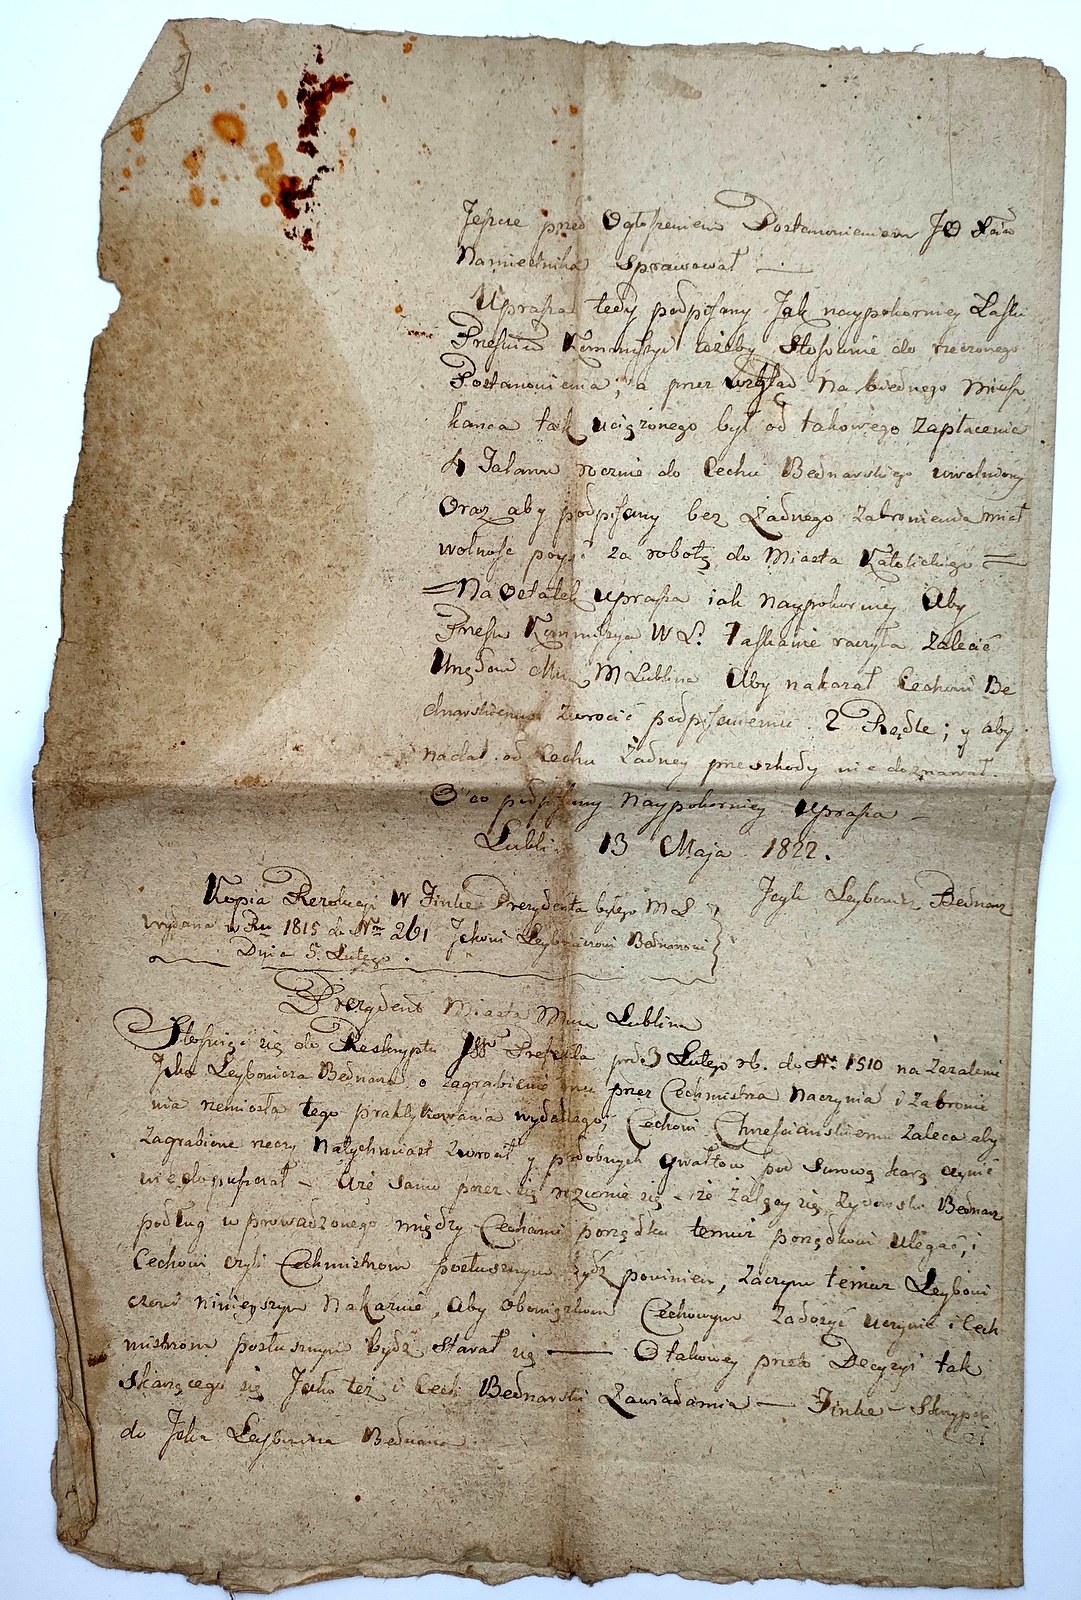 Jeszcze przed Ogłoszeniem Postanowieniem JO Xcia
Namiestnika sprawował —
Uprasza tedy podpisany Jak naypokorniey Łaski
Prześw Kommissyi iżeby stosownie do rzeczonego
Postanowienia; a przez wzgląd Na biednego Miesz
kanca tak uciążonego był od takowego zapłacenia
4 Talarow rocznie do Cechu Bednarskiego uwolniony
Oraz aby podpisany bez żadnego zabronienia miał
wolność poyść za robotą do Miasta Katolickiego —
— Na Ostatek uprasza iak Naypokorniey Aby
Prześw Kommissya W L. Łaskawie raczyła zalecić
Urzędowi Mu M Lublina Aby nakazał Cechowi Be
dnarskiemu zwrócić podpisanemu 2 Rądle; y aby
nadal od Cechu żadney przeszkody nie doznawał.
O co podpisany Naypokorniey uprasza —
Lublin 13 Maja 1822.
Jcyk Leybowicz Bednarz
Kopia Rezolucyi W Finke Prezydenta byłego M L
wydana w Ru 1815 do Nro 261 Jckowi Leybowiczowi Bednarzowi
Dnia 5. Lutego.
Prezydent Miasta Mun Lublina
Stosuiąc się do Reskryptu JW Prefekta pod 3 Lutego rb. do Nr. 1510 na Zażalenie
Jcka Leybowicza Bednarza o zagrabienie mu przez Cechmistrza Naczynia i Zabronie
nia rzemiosła tego praktykowania wydanego, Cechowi Chrześciańskiemu zaleca aby
zagrabione rzeczy Natychmiast zwrócił y podobnych gwałtow pod surową karą czynić
nie dopuszczał — Że samo przez się rozumie się — że żalący się żydowski Bednarz
podług wprowadzonego między Cechami porządku temuż porządkowi ulegać, i
Cechowi czyli Cechmistrzom posłusznym bydź powinien, zaczym temuż Leybowi
czowi ninieyszym Nakazuie, Aby obowiązkom Cechowym zadosyć uczynić i Cech
mistrzom posłusznym bydź starał się — O takowey przeto Decyzyi tak
skarżącego się Jako też i Cech Bednarski Zawiadamia — Finke —
do Jcka Leybowicza Bednarza